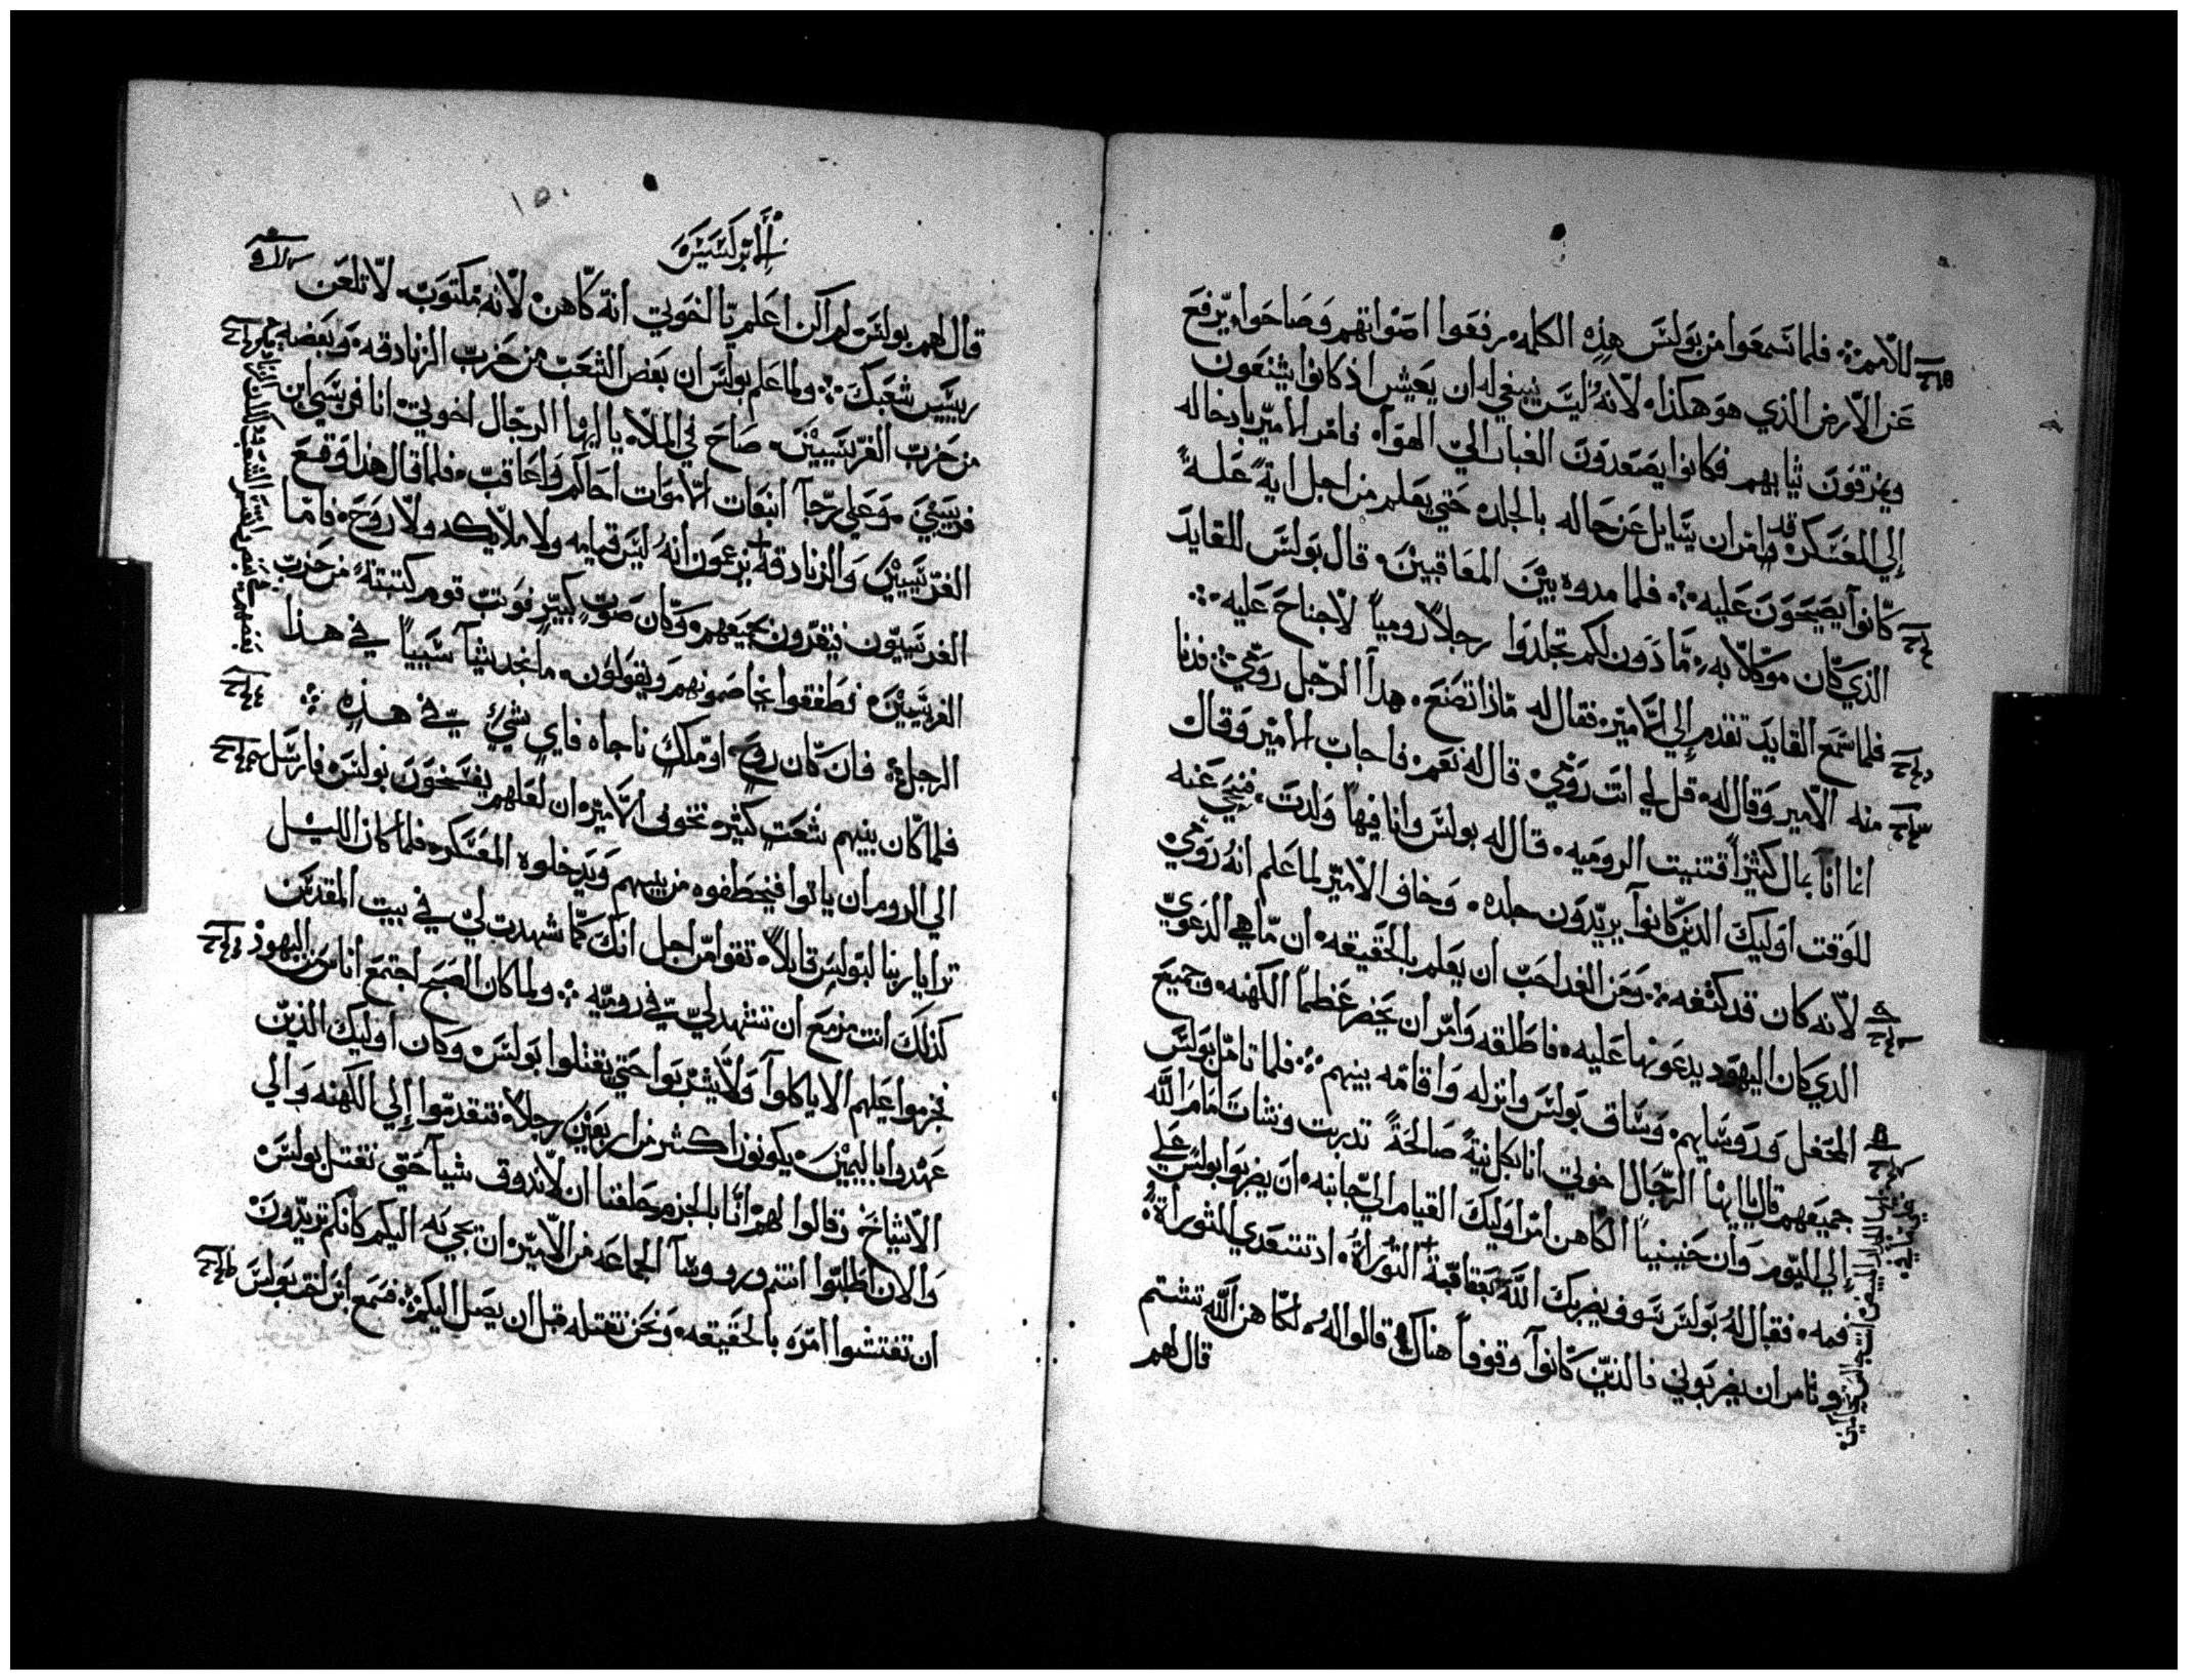 للامم؞ فلما سمعوا من بولس هذه الكلمه رفعوا اصواتهم وصاحوا يرفع
عن الارض الذي هو هكذا لانه ليس ينبغي له ان يعيش اذ كانوا يشنعون
ويمزقون ثيابهم فكانوا يصعدون الغبار الي الهوآ فامر الامير بادخاله
إلي المعسكر وامر ان يسايل عن حاله بالجلده حتي يعلم من اجل اية علة
كانوآ يصيحون عليه؞ فلما مدوه بين المعاقبين قال بولس للقايد
الذي كان موكلا به ما دون لكم تجلدوا رجلاً رومياً لاجناح عليه؞
فلما سمع القايد تقدم إلي الامير فقال له ماذا تصنع هدآ الرجل رومي؞ فدنا
منه الامير وقال له قل لي انت رومي قال له نعم فاجاب الامير وقال
انا انآ بمال كثير اقتنيت الروميه قال له بولس وانا فيها ولدت فنحي عنه
للوقت اوليك الذين كانوآ يريدون جلده وخاف الامير لما علم انه رومي
لانه كان قد كتفه؞ ومن الغد احب ان يعلم بالحقيقه ان ما هي الدعوي
الدي كان اليهود يدعونها عليه فاطلقه وامر ان يحضر عظما الكهنه وجميع
المحفل وروسايهم وساق بولس وانزله واقامه بينهم؞ فلما تامل بولس
جميعهم قال يا ايها الرجال اخوتي انا بكل نية صالحة تدبرت ونشات امام الله
إلي اليوم وان حنينيا الكاهن امر اوليك القيام الي جانبه ان يضربوا بولس علي
فمه فقال له بولس سوف يضربك الله اد تتعدي التوراة
وتامر ان يضربوني فالذين كانوآ وقوفاً هناك قالوا له لكاهن الله تشتم
قال لهم
١٥٠
الابركسيس
قال لهم بولس لم اكن اعلم يا اخوتي انه كاهن لانه مكتوب لا تلعن
رييس شعبك؞ ولما علم بولس ان بعض الشعب من حزب الزنادقه وبعضه
من حزب الفريسيين صاح في الملا يا ايها الرجال اخوتي انا فريسي ابن
فريسي وعلي رجآ انبعات الاموات احاكم واعاقب فلما قال هذا وقع
الفريسيين والزنادقه يزعمون انه ليس قيامه ولا ملايكه ولا روح فاما
الفريسيون فيقرون بجميعهم وكان صوت كبير فوتب قوم كتبته من حزب
الفريسيين فطفقوا يخاصمونهم ويقولون ما نجد شيآ سيياً في هذا
الرجل فان كان روح او ملك ناجاه فاي شي في هذه؞
فلما كان بينهم شعت كثير تخوف الامير ان لعلهم يفسخون بولس فارسل
الي الروم ان ياتوا فيخطفوه من بينهم ويدخلوه المعسكر فلما كان الليل
ترايا ربنا لبولس قايلاً تقوا من اجل انك كما شهدت لي في بيت المقدس
كذلك انت مزمع ان تشهد لي في روميه؞ ولما كان الصبح اجتمع اناس من اليهود
فحرموا عليهم الا ياكلوآ ولا يشربوا حتي يقتلوا بولس وكان اوليك الذين
عهدوا باليمين يكونون اكثر من اربعين رجلا فتقدموا إلي الكهنه والي
الاشياخ وقالوا لهم انا بالجزم حلفنا ان لا ندوق شيآ حتي نقتل بولس
والان اطلبوا انتم وروسآ الجماعه من الامير ان يجي به اليكم كانكم تريدون
ان تفتشوا امره بالحقيقه ونحن نقتله قبل ان يصل اليكم؞ فسمع ابن اخت بولس